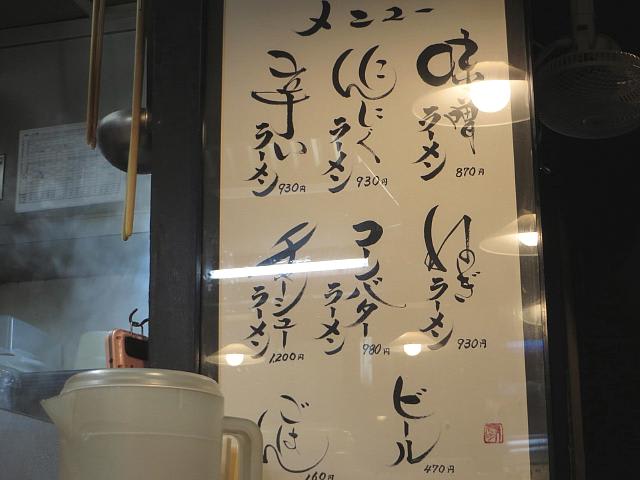 メニュー
味噌ラーメン 870円
にんにくラーメン 930円
辛いラーメン 930円
ねぎラーメン 930円
コーンバターラーメン 980円
チャーシューラーメン 1,200円
ビール 470円
ごはん 160円